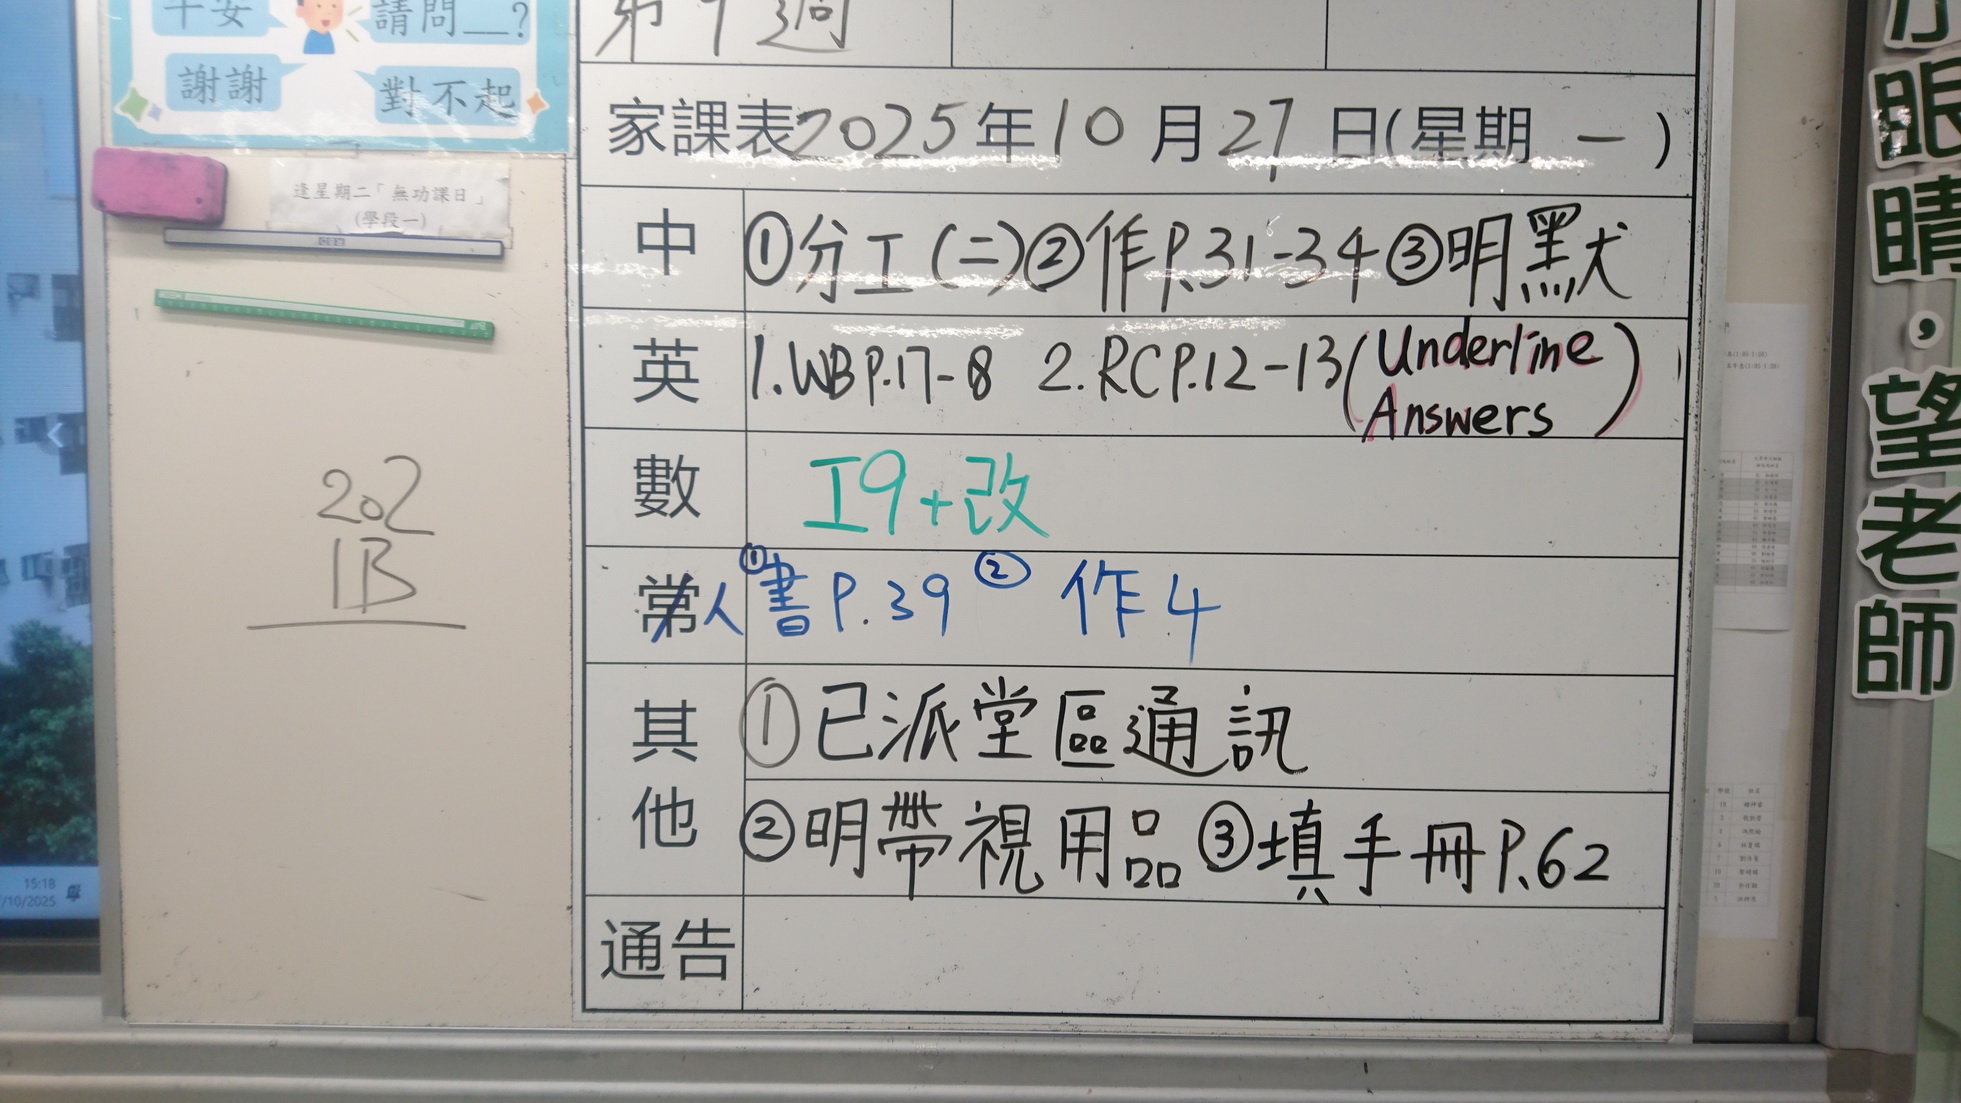 平安
請問__?
謝謝
對不起
逢星期二「無功課日」
(學段一)
202
1B
15:18
/10/2025
第9週
家課表2025年10月27日(星期一)
中 ①分工(二)②作P.31-34③明默
英 1.WBP.17-8 2.RCP.12-13(Underline
Answers)
數 工9+改
常人 ①書P.39 ②作4
其他 ①已派堂區通訊
②明帶視用品③填手冊P.62
通告
眼睛，望老師